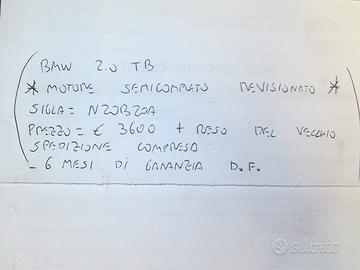 BMW 2.0 TB
* MOTORE SEMICOMPLETO REVISIONATO *
SIGLA = N20B20A
PREZZO = € 3600 + RESO DEL VECCHIO
SPEDIZIONE COMPRESA
- 6 MESI DI GARANZIA D.F.
subito